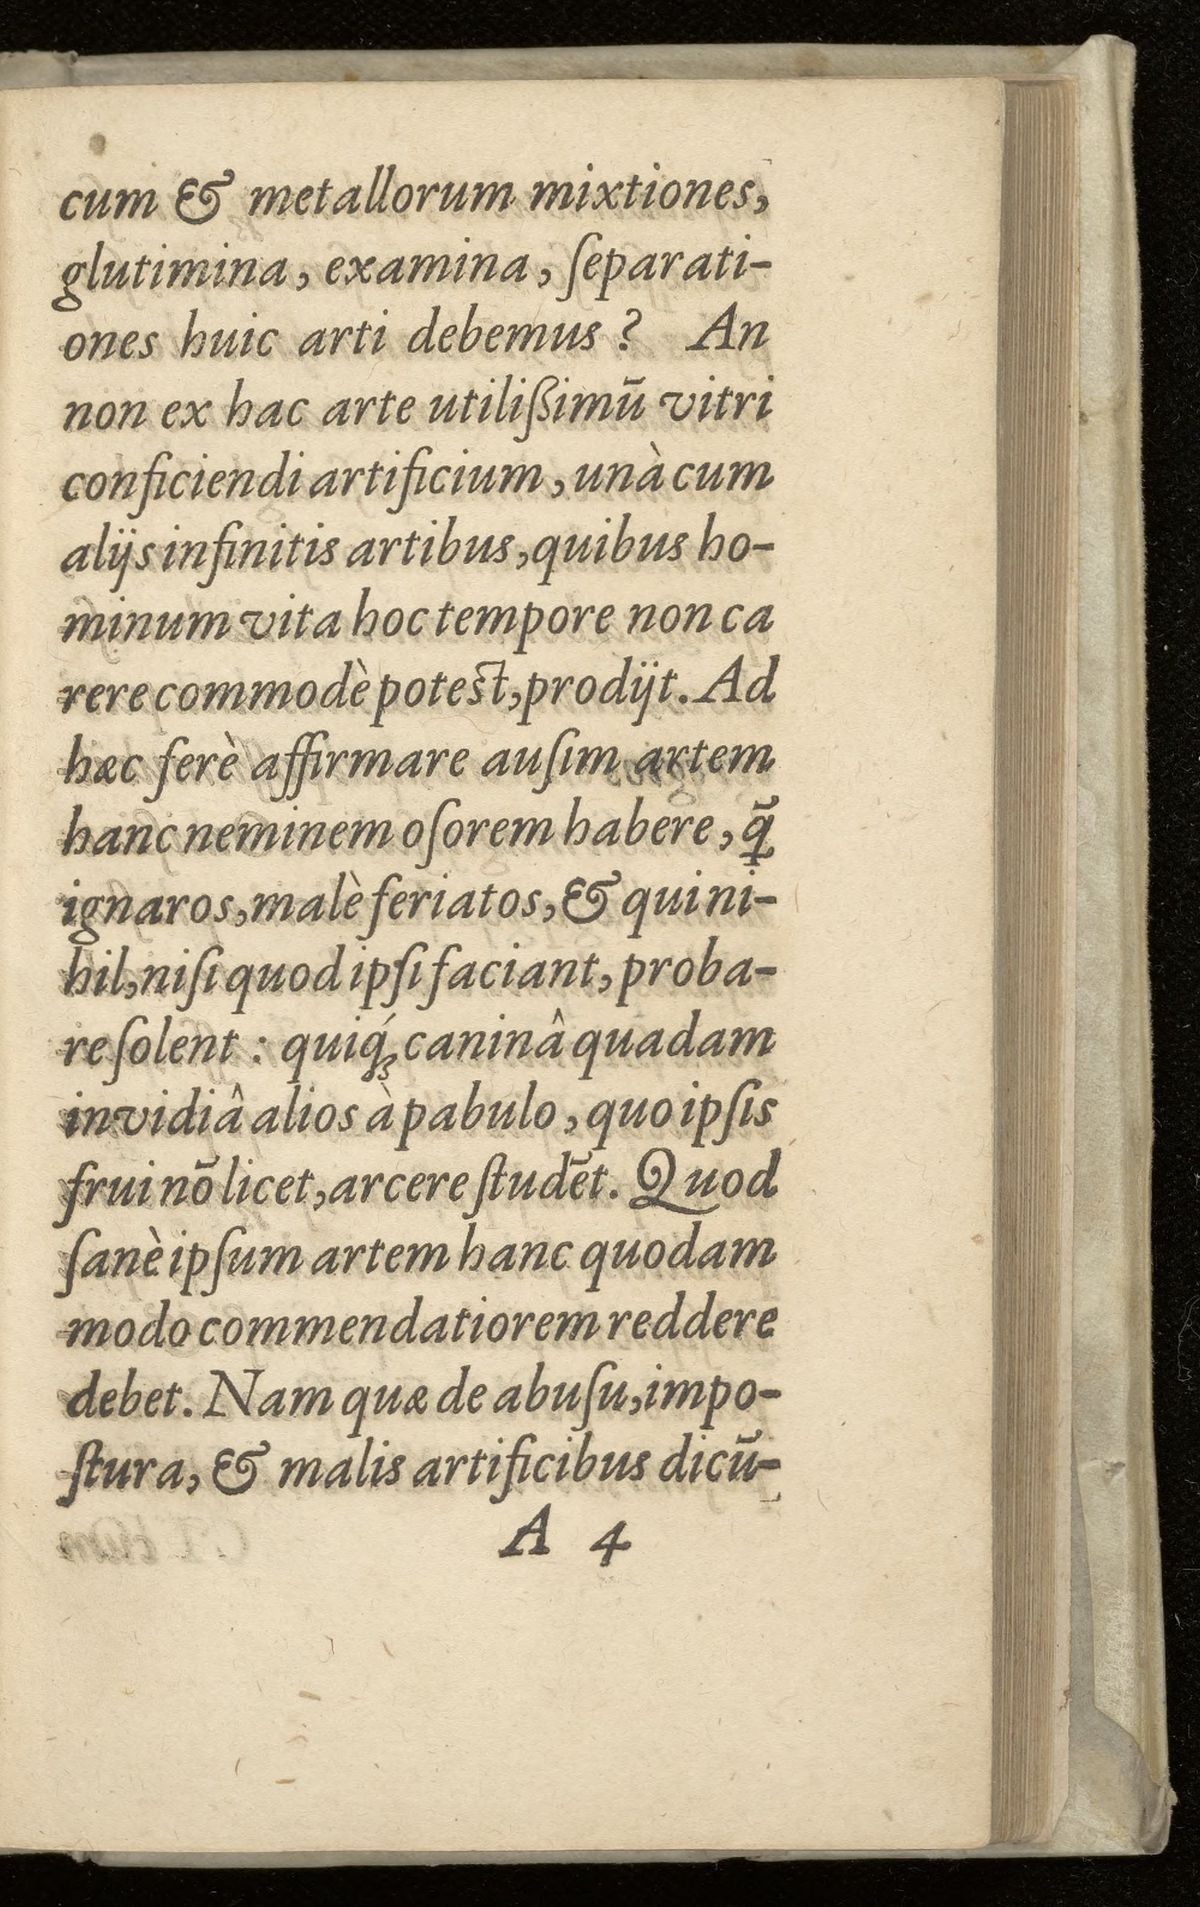 cum & metallorum mixtiones,
glutimina, examina, ſeparati-
ones huic arti debemus? An
non ex hac arte utilißimū vitri
conficiendi artificium, unà cum
alijs infinitis artibus, quibus ho-
minum vita hoc tempore non ca
rere commodè potest, prodijt. Ad
hæc ferè affirmare auſim artem
hanc neminem oſorem habere, q̄
ignaros, malè feriatos, & qui ni-
hil, niſi quod ipſi faciant, proba-
re ſolent: quiq́ꝫ caninâ quadam
invidiâ alios à pabulo, quo ipſis
frui nō licet, arcere ſtudēt. Quod
ſanè ipſum artem hanc quodam
modo commendatiorem reddere
debet. Nam quæ de abuſu, impo-
ſtura, & malis artificibus dicū-
A 4